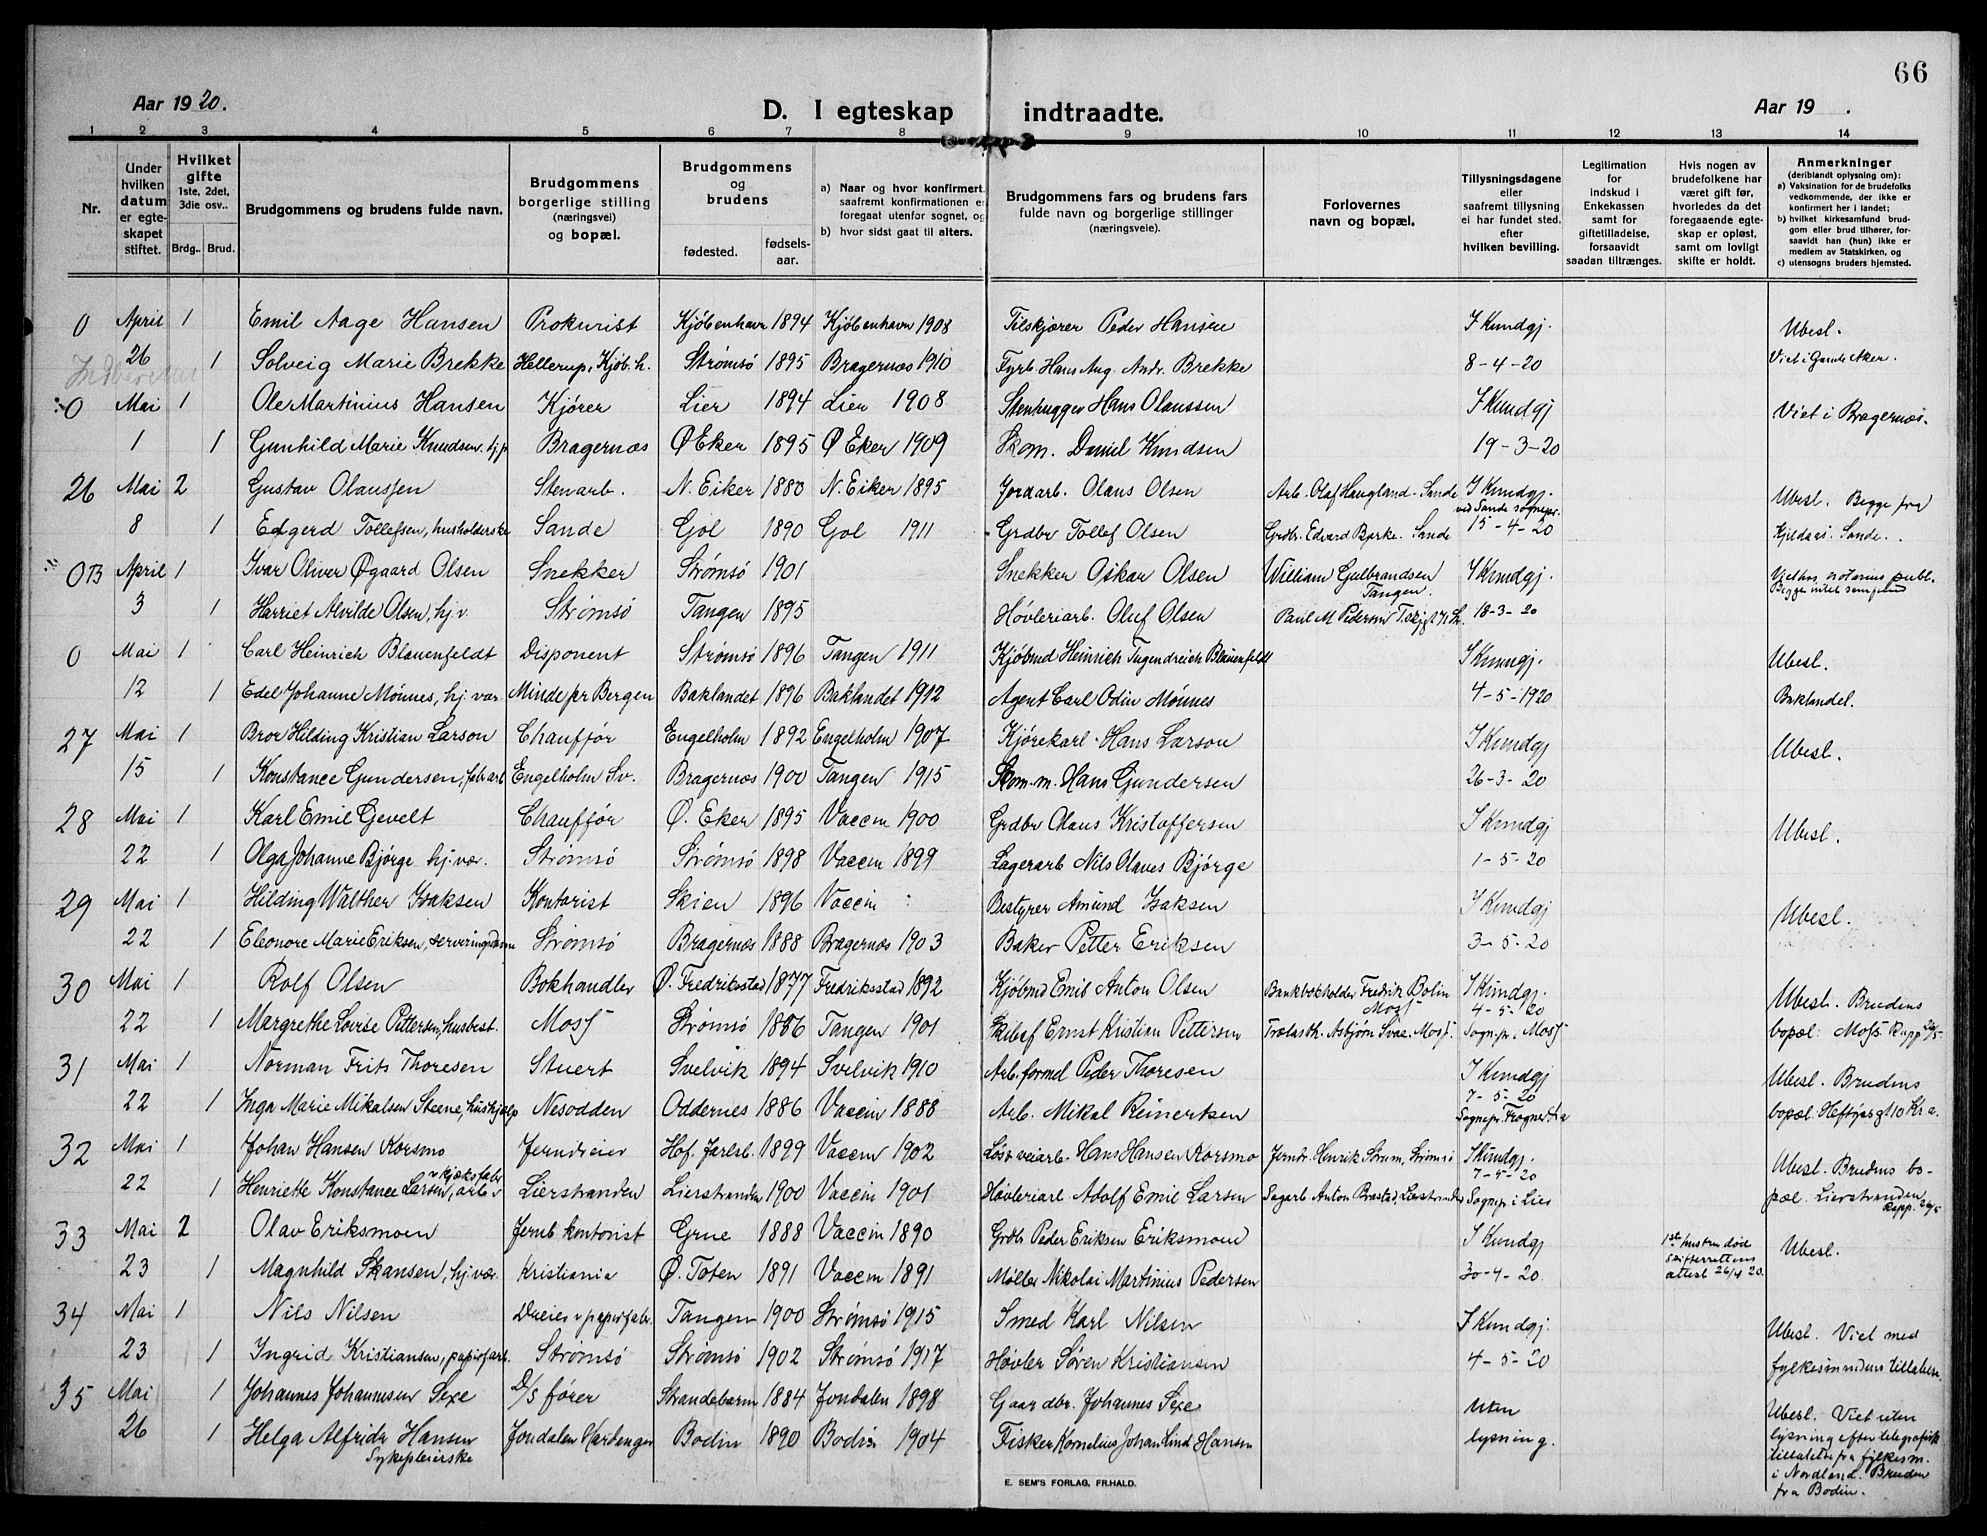 66
Aar 1920.
D. I egteskap indtraadte.
Aar 19 .
1 2 3 4 5 6 7 8 9 10 11 12 13 14
Nr.
Under hvilken datum er egteskapet stiftet.
Hvilket gifte 1ste, 2det, 3die osv..
Brdg.. Brud.
Brudgommens og brudens fulde navn.
Brudgommens borgerlige stilling (næringsvei) og bopæl.
Brudgommens og brudens
fødested. fødselsaar.
a) Naar og hvor konfirmert, saafremt konfirmationen er foregaat utenfor sognet, og
b) hvor sidst gaat til alters.
Brudgommens fars og brudens fars fulde navn og borgerlige stillinger (næringsveie).
Forlovernes navn og bopæl.
Tillysningsdagene eller saafremt tillysning ei har fundet sted, efter hvilken bevilling.
Legitimation for indskud i Enkekassen samt for giftetilladelse, forsaavidt saadan tiltrænges.
Hvis nogen av brudefolkene har været gift før, hvorledes da det foregaaende egteskap er opløst, samt om lovligt skifte er holdt.
Anmerkninger (deriblandt oplysning om):
a) Vaksination for de brudefolks vedkommende, der ikke er konfirmert her i landet;
b) hvilket kirkesamfund brudgom eller brud tilhører, forsaavidt han (hun) ikke er medlem av Statskirken, og
c) utensogns bruders hjemsted.
0 April 1 Emil Aage Hansen Prokurist Kjöbenhavn 1894 Kjöbenhavn 1908 Tilskjærer Peder Hansen I Kundgj. Ubesl.
26 1 Solveig Marie Brekke Hellerup, Kjöb.h. Strømsø 1895 Bragernæs 1910 Fyrb. Hans Aug. Andr. Brekke 8-4-20 Viet i Gamle Aker.
0 Mai 1 Ole Martinius Hansen Kjører Lier 1894 Lier 1908 Stenhugger Hans Olaussen I Kundgj Viet i Bragernæs.
1 1 Gunhild Marie Knudsen hj.p Bragernæs Ø Eker 1895 Ø Eker 1909 Skom. Daniel Knudsen 19-3-20
26 Mai 2 Gustav Olaussen Stenarb. N. Eiker 1880 N. Eiker 1895 Jordarb. Olaus Olsen Arb. Olaf Haugland. Sande I Kundgj. ved Sande sognepr. Ubesl. Begge fra
8 1 Tollefsen, husholderske Sande Gol 1890 Gol 1911 Grdbr Tollef Olsen Grdbr. Edvard Bjerke. Sande 15-4-20 Kjeldaas. Sande.
0B April 1 Ivar Oliver Øgaard Olsen Snekker Strømsø 1901 Snekker Oskar Olsen William Gulbrandsen Tangen. I Kundgj. notarius publ.
3 1 Harriet Alvilde Olsen, hj.v. Strømsø Tangen 1895 Høvleriarb. Oluf Olsen Paul M Pedersen 18-3-20
0 Mai 1 Carl Heinrich Blauenfeldt Disponent Strømsø 1896 Tangen 1911 Kjöbmd Heinrich Tugendreich Blauenfeldt I Kundgj. Ubesl.
12 1 Edel Johanne Mønnes, hj. vær Minde pr Bergen Baklandet 1896 Baklandet 1912 Agent Carl Odin Mønnes 4-5-1920 Baklandet.
27 Mai 1 Bror Hilding Kristian Larson Chauffør Engelholm 1892 Engelholm 1907 Kjørekarl Hans Larson I Kundgj Ubesl.
15 1 Konstance Gundersen, fabr.arb Engelholm Sv. Bragernæs 1900 Tangen 1915 Skom.m. Hans Gundersen 26-3-20
28 Mai 1 Karl Emil Gevelt Chauffør Ø. Eker 1895 Vaccin 1900 Grdbr Olaus Kristoffersen I Kundgj Ubesl.
22 1 Olga Johanne Bjørge hj. vær. Strømsø Strømsø 1898 Vaccin 1899 Lagerarb Nils Olaves Bjørge 1-5-20
29 Mai 1 Hilding Walther Isaksen Kontorist Skien 1896 Vaccin Bestyrer Amund Isaksen I Kundgj Ubesl.
22 1 Eleonore Marie Eriksen, serveringsdame Strømsø Bragernæs 1888 Bragernæs 1903 Baker Petter Eriksen 3-5-20
30 Mai 1 Rolf Olsen Bokhandler Ø. Fredriksstad 1877 Fredriksstad 1892 Kjöbmd Emil Anton Olsen Bankbokholder Fredrik Bolin Moss I Kundgj. 4-5-20 Ubesl. Brudens
22 1 Margrethe Lovise Pettersen, husbest. Moss Strømsø 1886 Tangen 1901 Ernst Kristian Pettersen Trælasth. Asbjørn Svae. Moss. Sognepr. i Moss bopæl: Moss. Rapp 26/5
31 Mai 1 Norman Frits Thoresen Stuert Svelvik 1894 Svelvik 1910 Arb.formd Peder Thoresen I Kundgj Ubesl. Brudens
22 1 Inga Marie Mikalsen Steene, hushjælp Nesodden Oddernes 1886 Vaccin 1888 Arb. Mikal Reinertsen 7-5-20 Sognepr. Frogner Kra bopæl: Heftyesgt 10 Kra.
32 Mai 1 Johan Hansen Korsmo Jerndreier Hof. Jarlsb. 1899 Vaccin 1902 Løs. veiarb. Hans Hansen Korsmo Jerndr. Henrik Strøm, Strømsø I Kundgj. 7-5-20 Ubesl. Brudens bo-
22 1 Henriette Konstance Larsen, arb. v kjæksfabr Lierstranden Lierstranden 1900 Vaccin 1901 Høvleriarb Adolf Emil Larsen Sagarb. Anton Brastad, Lierstranden Sognepr i Lier pæl. Lierstranden Rapp. 26/5
33 Mai 2 Olav Eriksmoen Jernb kontorist Grue 1888 Vaccin 1890 Grdb. Peder Eriksen Eriksmoen I Kundgj 1ste hustru død Skifterettens attest 26/4 20. Ubesl.
23 1 Magnhild Skansen, hj. vær. Kristiania Ø. Toten 1891 Vaccin 1891 Møller Nikolai Martinius Pedersen 30-4-20.
34 Mai 1 Nils Nilsen Dreier v papirfabr. Tangen 1900 Strømsø 1915 Smed Karl Nilsen I Kundgj. Ubesl. Viet med
23 1 Ingrid Kristiansen, papirfarb. Strømsø Strømsø 1902 Strømsø 1917 Høvler Søren Kristiansen 4-5-20 fylkesmandens tilladelse.
35 Mai 1 Johannes Johannesen Sexe D/S fører Strandebarm 1884 Jondalen 1898 Gaardbr. Johannes Sexe Uten Ubesl. Viet uten
26 1 Helga Alfride Hansen Sykepleierske Jondalen Hardanger Bodin 1890 Bodin 1904 Fisker Kornelius Johan Lind Hansen lysning. lysning efter telegrafisk
tilladelse fra fylkesm.
i Nordland. Bruden
fra Bodin.
E. SEM'S FORLAG, FR.HALD.